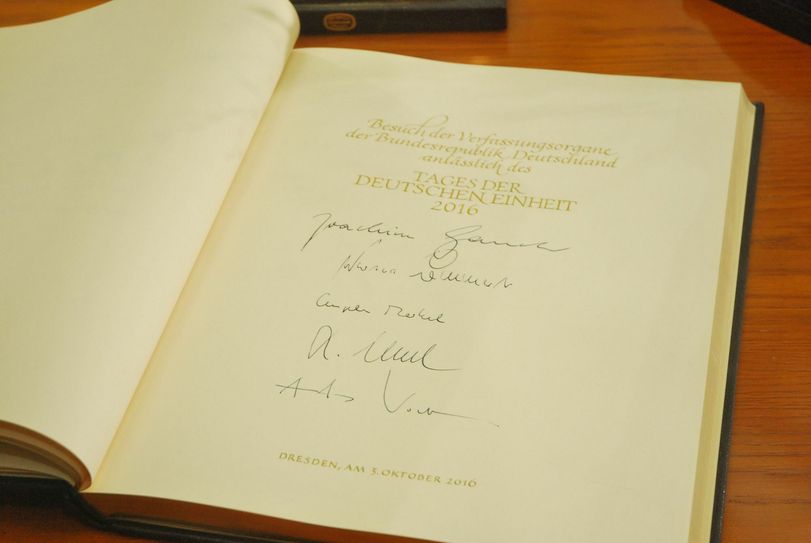 Besuch der Verfassungsorgane
der Bundesrepublik Deutschland
anlässlich des
TAGES DER
DEUTSCHEN EINHEIT
2016
Joachim Gauck
Angela Merkel
DRESDEN, AM 3. OKTOBER 2016